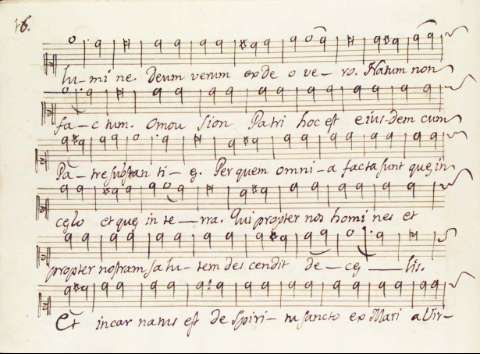 16.
lu-mi ne. Deum verum ex de o ve-ro. Natum non
fa-ctum. Omou sion Patri hoc est eius-dem cum
Pa-tre substan ti-ę. Per quem omni-a facta sunt quę in
cęlo et quę in te-rra. Qui propter nos homi nes et
propter nostram salu-tem des cendit de-cę-lis.
Et incar natus est de Spiri-tu sancto ex Mari a Vir-